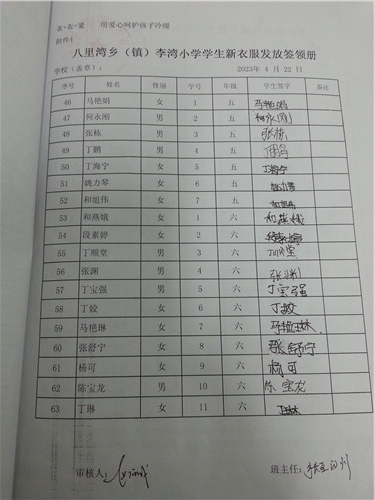 衣·衣·爱 用爱心呵护孩子冷暖
附件4
八里湾乡（镇）李湾小学学生新衣服发放签领册
学校（盖章）： 2023年 4 月 22 日
序号 姓名 性别 学号 年级 学生签字 备注
46 马艳娟 女 1 五 马艳娟
47 何永刚 男 2 五 何永刚
48 张栋 男 3 五 张栋
49 丁鹏 男 4 五 丁鹏
50 丁海宁 男 5 五 丁海宁
51 姚力琴 女 6 五
52 和旭伟 女 7 五
53 和燕娥 女 1 六 和燕娥
54 段素婷 女 2 六 段素婷
55 丁顺堂 男 3 六 丁顺堂
56 张渊 男 4 六 张渊
57 丁宝强 男 5 六 丁宝强
58 丁姣 女 6 六 丁姣
59 马艳琳 女 7 六 马艳琳
60 张舒宁 女 8 六 张舒宁
61 杨可 女 9 六 杨可
62 陈宝龙 男 10 六 陈宝龙
63 丁琳 女 11 六 丁琳
审核人： 班主任：